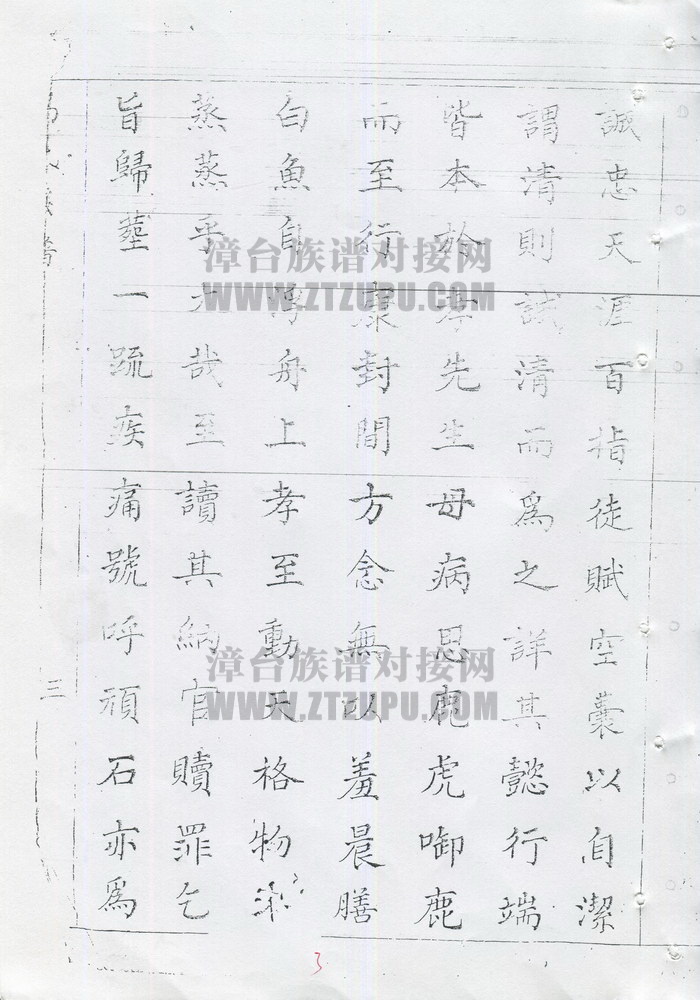 誠忠天涯百指徒賦空囊以自潔
謂清則試清而為之詳其懿行端
皆本於孝先生母病思鹿虎啣鹿
而至行棄封間方念無以羞晨膳
白魚自舟上孝至動天格物
蒸蒸乎哉至讀其納官贖罪乞
旨歸塟一疏疾痛號呼頑石亦為
三
3
漳台族谱对接网
WWW.ZTZUPU.COM
漳台族谱对接网
WWW.ZTZUPU.COM